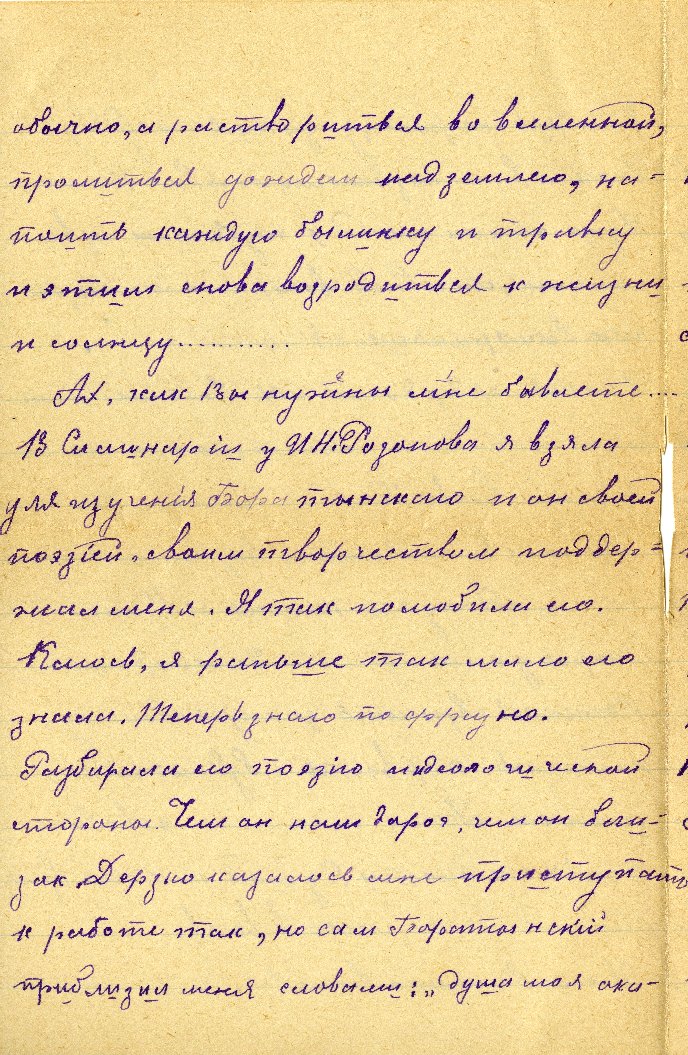 обычно, а растворитьея во вселенной,
пролиться дождем над землею, на-
поить каждую былинку и травку
и этим снова возродиться к жизни
и солнцу...........
Ах, как Вы нужны мне бываете....
В Семинаріи у И.Н. Розанова я взяла
для изученія Боратынскаго и он своей
поэзіей, своим творчеством поддер-
жал меня. Я так полюбила его.
Каюсь, я раньше так мало его
знала. Теперь знаю по
Разбирала его поэзію идеологической
стороны. Чем он нам дорог, чем он бли-
зок. Дерзко казалось мне приступать
к работе так, но сам Боратынскій
приблизил меня словами: „душа моя ока-